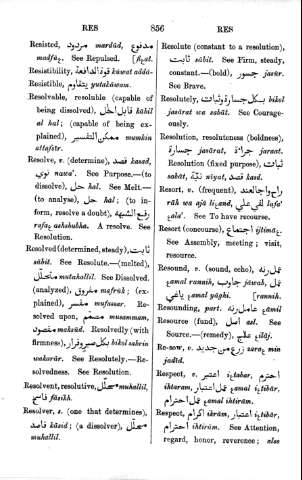 RES 856 RES
Resisted, مردود mardūd, مدفوع
madfūع. See Repulsed. [fiعal.
Resistibility, قوة الدافعة kūwat addā-
Resistible, يتقاوم yutakāwam.
Resolvable, resoluble (capable of
being dissolved), قابل الحل kābil
al hal; (capable of being ex-
plained), ممكن التفسير mumkin
attafsīr.
Resolve, v. (determine), قصد kasad,
نوى nawa'. See Purpose.—(to
dissolve), حل hal. See Melt.—
(to analyse), حل hal; (to in-
form, resolve a doubt), رفع الشبهه
rafaع ashshubha. A resolve. See
Resolution.
Resolved (determined, steady), ثابت
sābit. See Resolute.—(melted),
متحلل mutahallil. See Dissolved.
(analyzed), مفروق mafrūk; (ex-
plained), مفسر mufassar. Re-
solved upon, مصمم musammam,
مقصود maksūd. Resolvedly (with
firmness), بكل صبر وقرار bikul sabrin
wakarār. See Resolutely.—Re-
solvedness. See Resolution.
Resolvent, resolutive, محلل muhallil,
فاسخ fāsikh.
Resolver, s. (one that determines),
قاصد kāsid; (a dissolver), محلل
muhallil.
Resolute (constant to a resolution),
ثابت sābit. See Firm, steady,
constant.—(bold), جسور jasūr.
See Brave.
Resolutely, بكل جسارة وثبات bikul
jasārat wa sabāt. See Courage-
ously.
Resolution, resoluteness (boldness),
جسارة jasārat, جراءة jaraat.
Resolution (fixed purpose), ثبات
sabāt, نية niyat, قصد kasd.
Resort, v. (frequent), راح واجا لعند
rāh wa ajā liعand, لفي علي lafa'
عala'. See To have recourse.
Resort (concourse), اجتماع ijtimāع.
See Assembly, meeting; visit,
resource.
Resound, v. (sound, echo), عمل رنه
عamal rannih, جاوب jāwab, عمل
ياغي عamal yāghi. [rannih.
Resounding, part. عامل رنه عāmil
Resource (fund), اصل asl. See
Source.—(remedy), علاج عilāj.
Re-sow, v. زرع من جديد zaraع min
jadīd.
Respect, v. اعتبر iعtabar, احترم
ihtaram, عمل اعتبار عamal iعtibār,
عمل احترام عamal ihtirām.
Respect, اكرام ikrām, اعتبار iعtibār,
احترام ihtirām. See Attention,
regard, honor, reverence; also